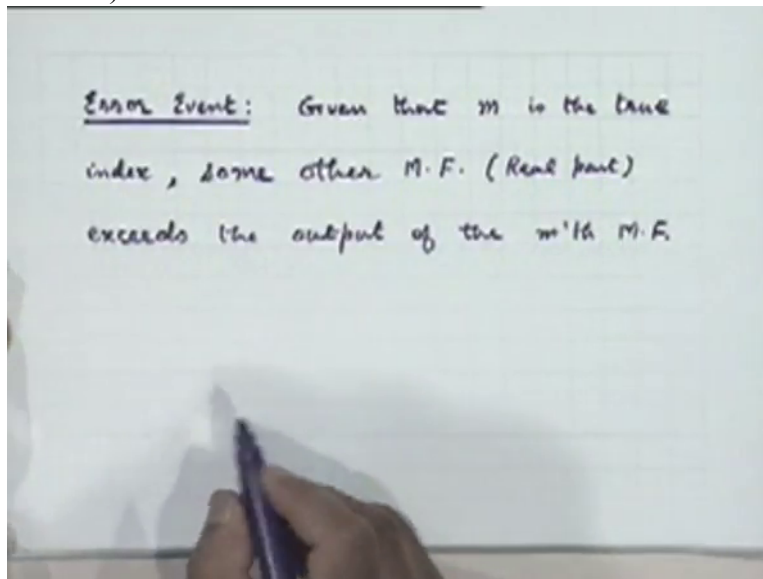 Error Event: Given that m is the true
index, some other M.F. (Real part)
exceeds the output of the m'th M.F.